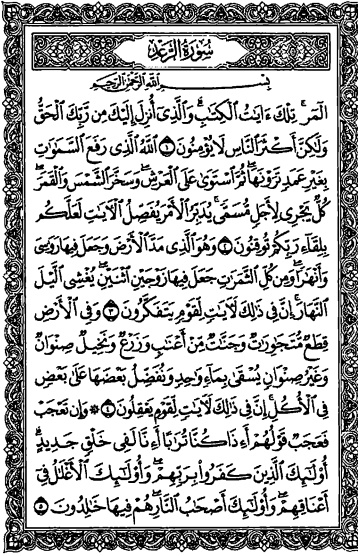 سُورَةُ الرَّعْدِ
بِسْمِ اللَّهِ الرَّحْمَٰنِ الرَّحِيمِ
الٓمٓر ۚ تِلْكَ ءَايَٰتُ الْكِتَٰبِ ۗ وَالَّذِىٓ أُنزِلَ إِلَيْكَ مِن رَّبِّكَ الْحَقُّ
وَلَٰكِنَّ أَكْثَرَ النَّاسِ لَا يُؤْمِنُونَ ١ اللَّهُ الَّذِى رَفَعَ السَّمَٰوَٰتِ
بِغَيْرِ عَمَدٍ تَرَوْنَهَا ۖ ثُمَّ اسْتَوَىٰ عَلَى الْعَرْشِ ۖ وَسَخَّرَ الشَّمْسَ وَالْقَمَرَ ۖ
كُلٌّ يَجْرِى لِأَجَلٍ مُّسَمًّى ۚ يُدَبِّرُ الْأَمْرَ يُفَصِّلُ الْءَايَٰتِ لَعَلَّكُم
بِلِقَآءِ رَبِّكُمْ تُوقِنُونَ ٢ وَهُوَ الَّذِى مَدَّ الْأَرْضَ وَجَعَلَ فِيهَا رَوَٰسِىَ
وَأَنْهَٰرًا ۖ وَمِن كُلِّ الثَّمَرَٰتِ جَعَلَ فِيهَا زَوْجَيْنِ اثْنَيْنِ ۖ يُغْشِى الَّيْلَ
النَّهَارَ ۚ إِنَّ فِى ذَٰلِكَ لَءَايَٰتٍ لِّقَوْمٍ يَتَفَكَّرُونَ ٣ وَفِى الْأَرْضِ
قِطَعٌ مُّتَجَٰوِرَٰتٌ وَجَنَّٰتٌ مِّنْ أَعْنَٰبٍ وَزَرْعٌ وَنَخِيلٌ صِنْوَانٌ
وَغَيْرُ صِنْوَانٍ يُسْقَىٰ بِمَآءٍ وَٰحِدٍ وَنُفَضِّلُ بَعْضَهَا عَلَىٰ بَعْضٍ
فِى الْأُكُلِ ۚ إِنَّ فِى ذَٰلِكَ لَءَايَٰتٍ لِّقَوْمٍ يَعْقِلُونَ ٤ ۞ وَإِن تَعْجَبْ
فَعَجَبٌ قَوْلُهُمْ أَءِذَا كُنَّا تُرَٰبًا أَءِنَّا لَفِى خَلْقٍ جَدِيدٍ ۗ
أُو۟لَٰٓئِكَ الَّذِينَ كَفَرُوا۟ بِرَبِّهِمْ ۖ وَأُو۟لَٰٓئِكَ الْأَغْلَٰلُ فِىٓ
أَعْنَاقِهِمْ ۖ وَأُو۟لَٰٓئِكَ أَصْحَٰبُ النَّارِ ۖ هُمْ فِيهَا خَٰلِدُونَ ٥